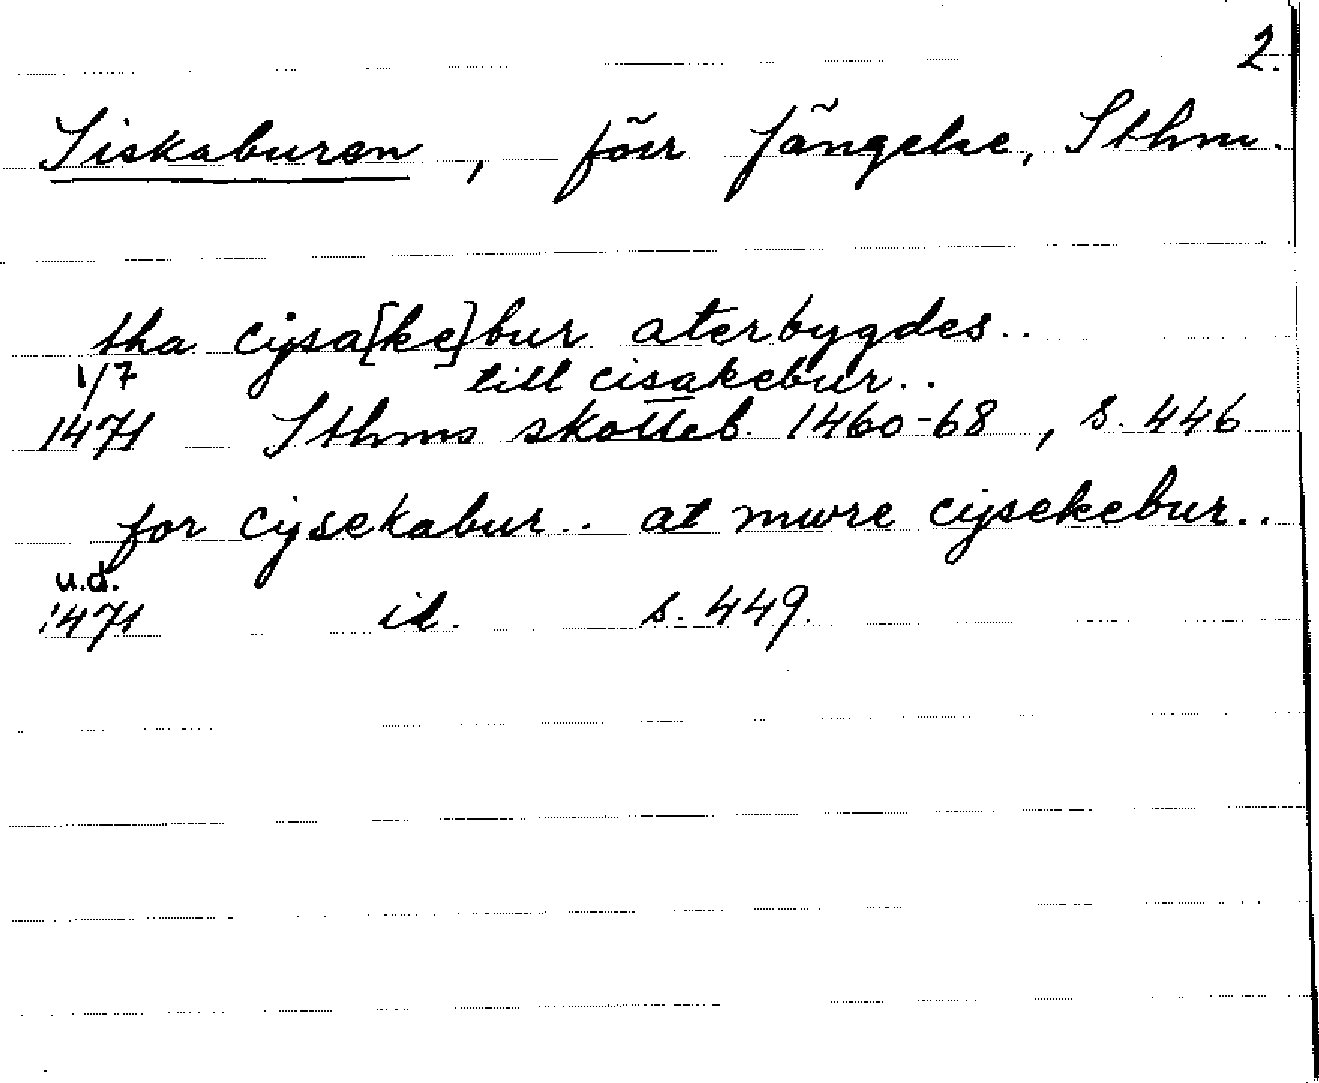 2.
Siskaburen, förr fängelse, Sthm.
tha cijsa[ke]bur aterbygdes..
1/7 till cisakebur..
1471 Sthms skotteb. 1460-68, s. 446
for cijsekabur.. at mwre cijsekebur..
u.d.
1471 id. s. 449.